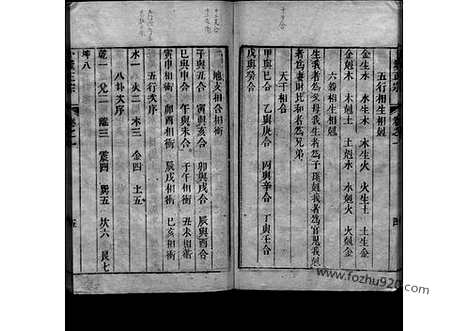 五行相生相剋
金生水　水生木　木生火　火生土　土生金
金剋木　木剋土　土剋水　水剋火　火剋金
六親相生相剋
生我者爲父母我生者爲子孫剋我者爲官鬼我剋
者爲妻財比和者爲兄弟
天干相合
甲與己合　乙與庚合　丙與辛合　丁與壬合
戊與癸合
地支相合相衝
子與丑合　寅與亥合　卯與戌合　辰與酉合
巳與申合　午與未合　子午相衝　丑未相衝
寅申相衝　卯酉相衝　辰戌相衝　巳亥相衝
五行次序
水一　火二　木三　金四　土五
八卦次序
乾一　兌二　離三　震四　巽五　坎六　艮七
坤八
https://www.fozhu920.com/